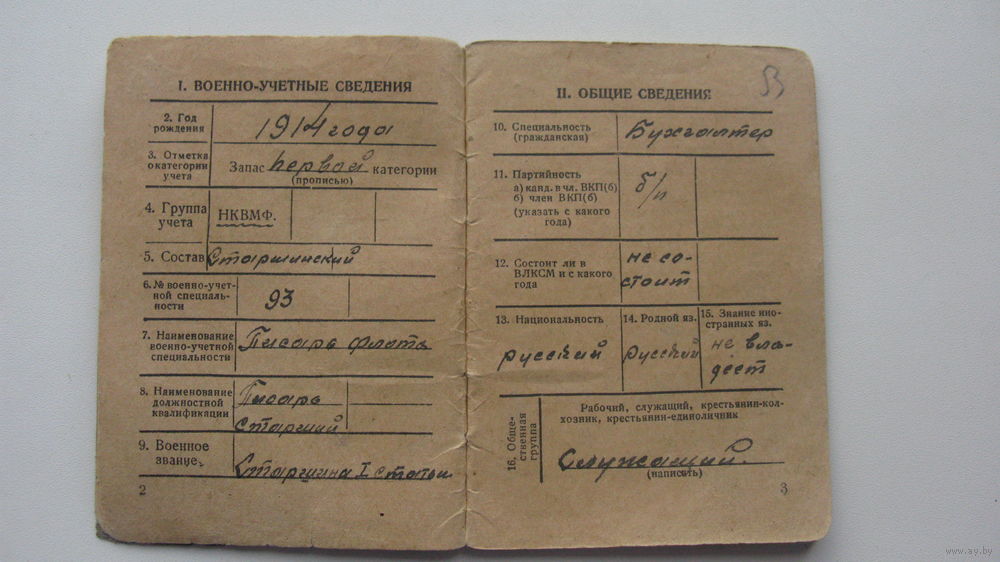 I. ВОЕННО-УЧЕТНЫЕ СВЕДЕНИЯ
2. Год
рождения
1914 года
3. Отметка
о категории
учета
Запас первой категории
(прописью)
4. Группа
учета
НКВМФ.
5. Состав Старшинский
6. № военно-учет-
ной специаль-
ности
93
7. Наименование
военно-учетной
специальности
Писарь флота
8. Наименование
должностной
квалификации
Писарь
старший
9. Военное
звание
Старшина I статьи
2
II. ОБЩИЕ СВЕДЕНИЯ
10. Специальность
(гражданская)
Бухгалтер
11. Партийность
а) канд. в чл. ВКП(б)
б) член ВКП(б)
(указать с какого
года)
б/п
12. Состоит ли в
ВЛКСМ и с какого
года
не со-
стоит
13. Национальность
русский
14. Родной яз.
русский
15. Знание ино-
странных яз.
не вла-
деет
16. Обще-
ственная
группа
Рабочий, служащий, крестьянин-кол-
хозник, крестьянин-единоличник
Служащий.
(написать)
3
www.ay.by